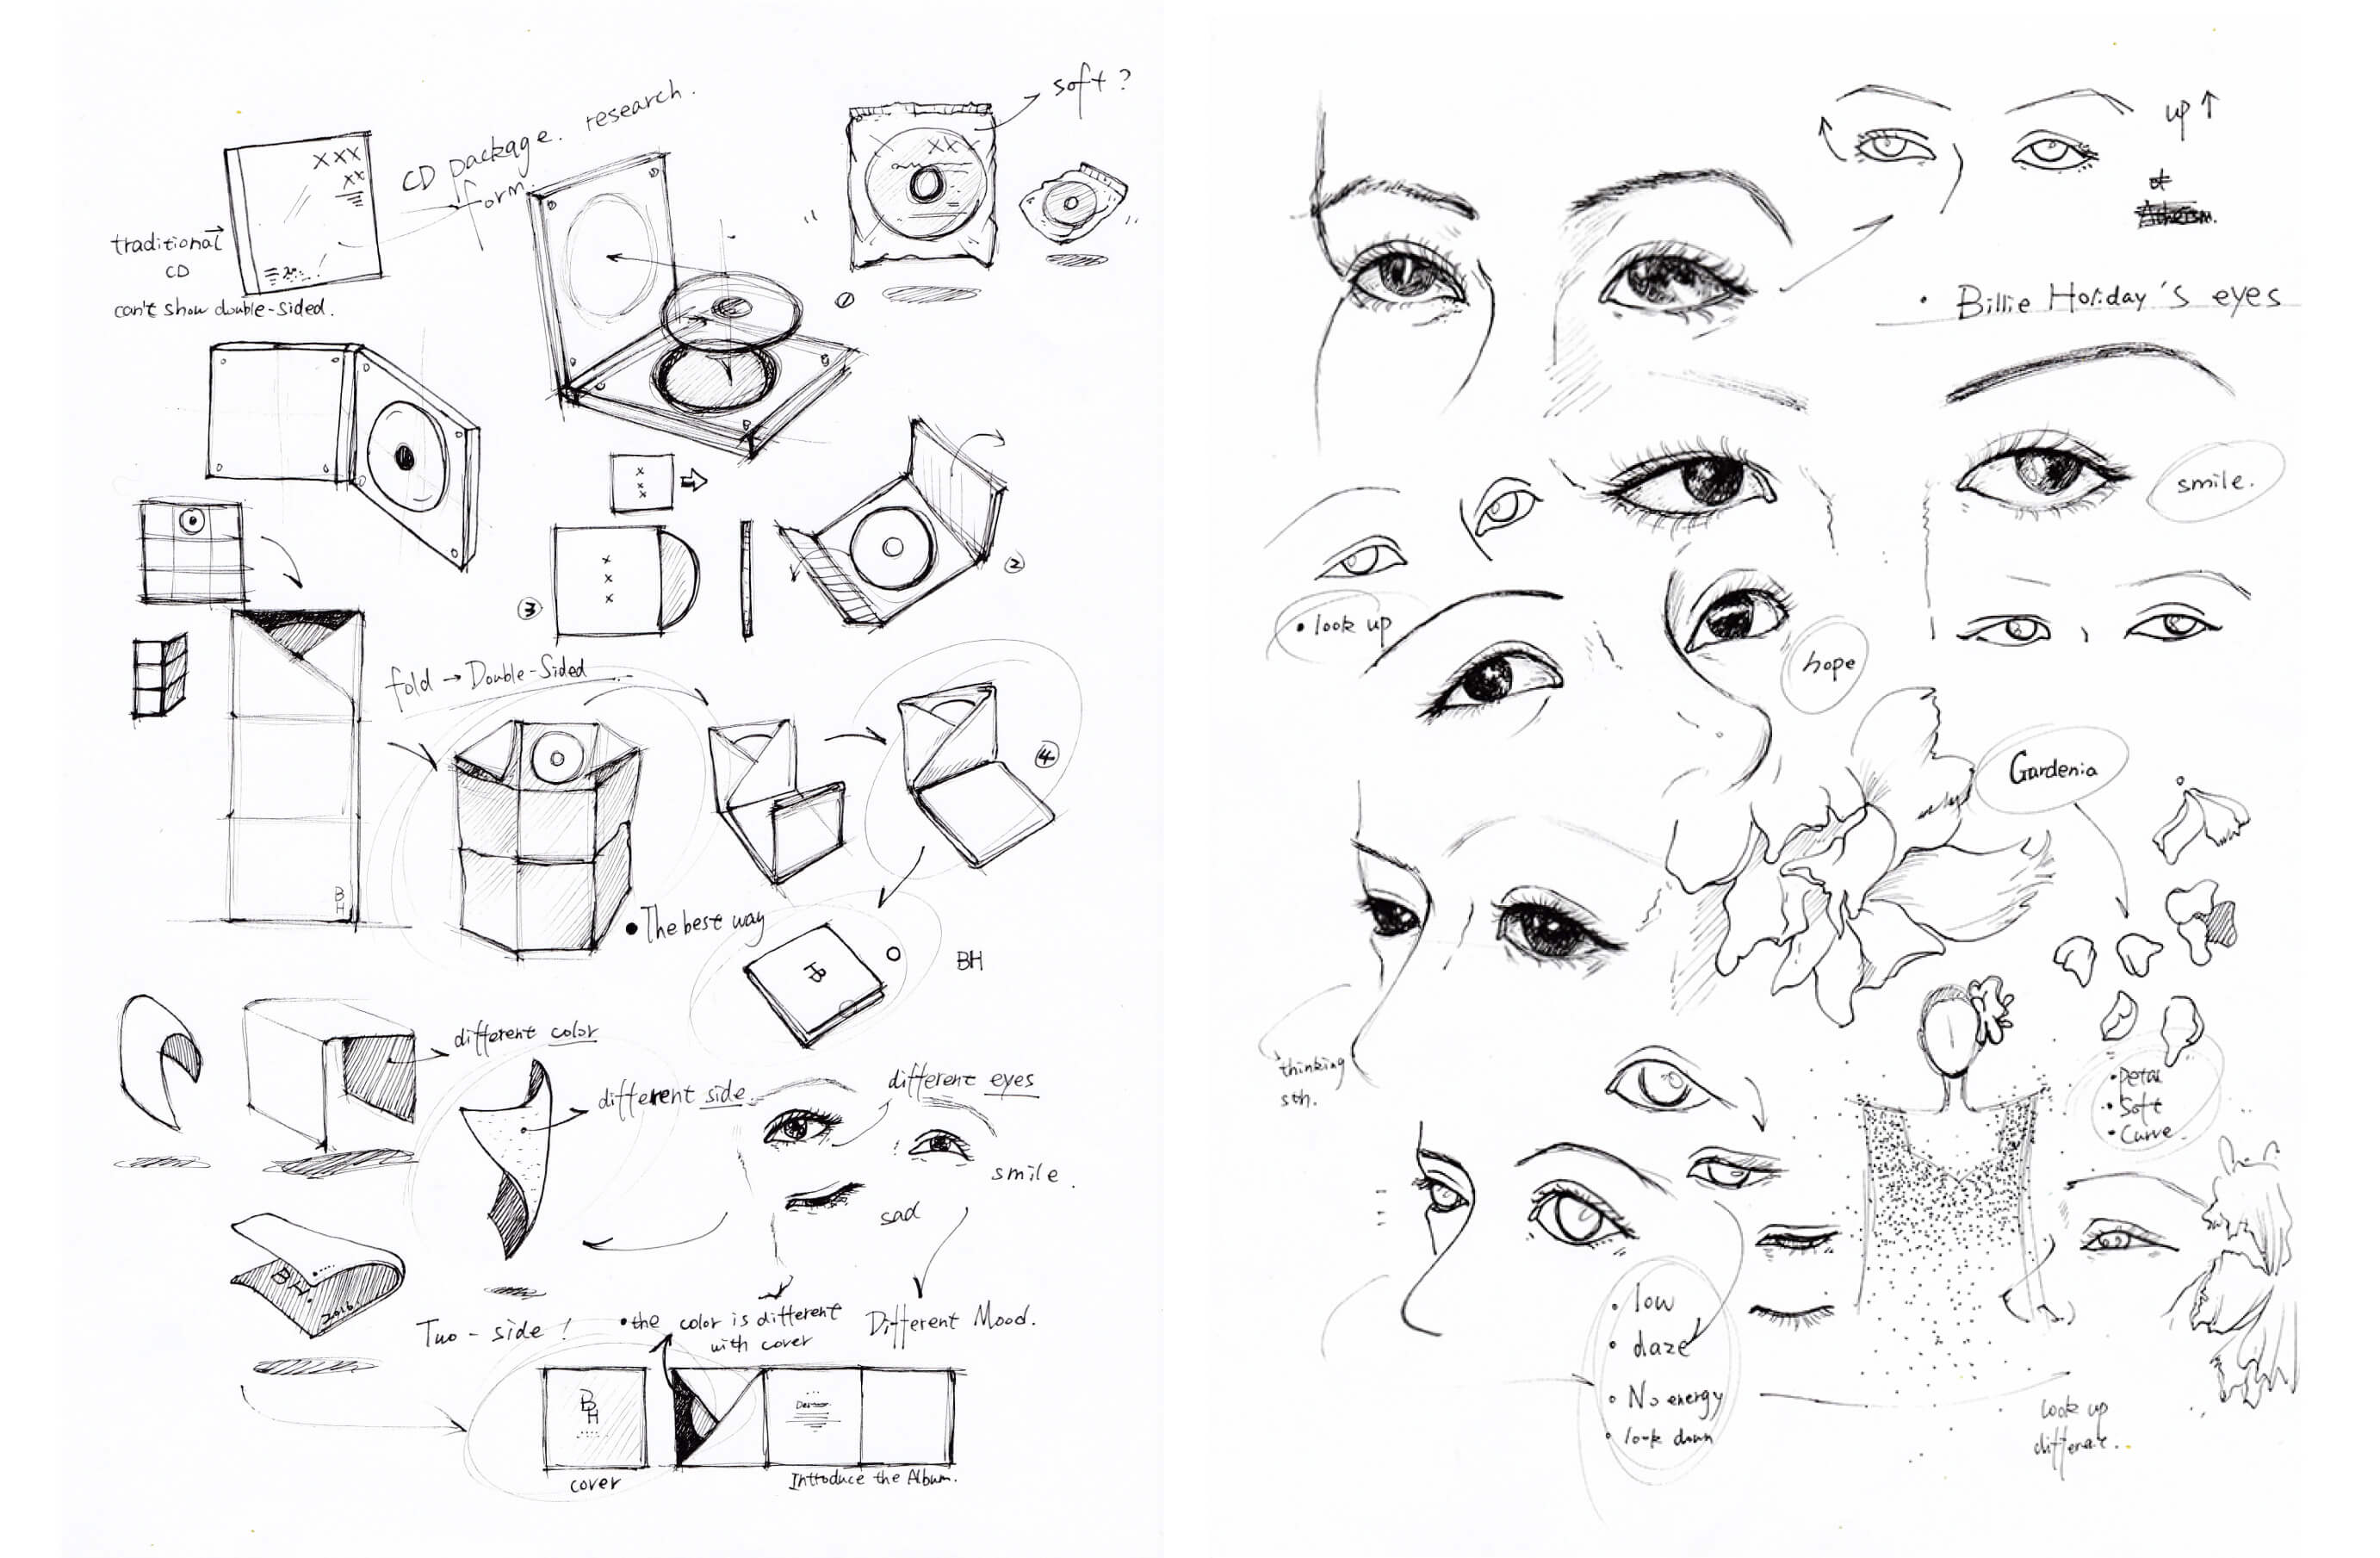 CD package. research.
form.
soft ?
XXX
XX
XX
traditional
CD
can't show double-sided.
1
x
x
x
2
3
x
x
x
fold → Double-Sided
4
B
H
• The best way
BH
BH
different color
different side
different eyes
smile.
sad
B H.
2016.
Two - side !
• the color is different
with cover
Different Mood.
B
H
cover
Introduce the Album.
up ↑
of
Atheism.
• Billie Holiday's eyes
smile.
• look up
hope
Gardenia
thinking
sth.
• Petal
• Soft
• Curve.
• low
• daze
• No energy
• look down
look up